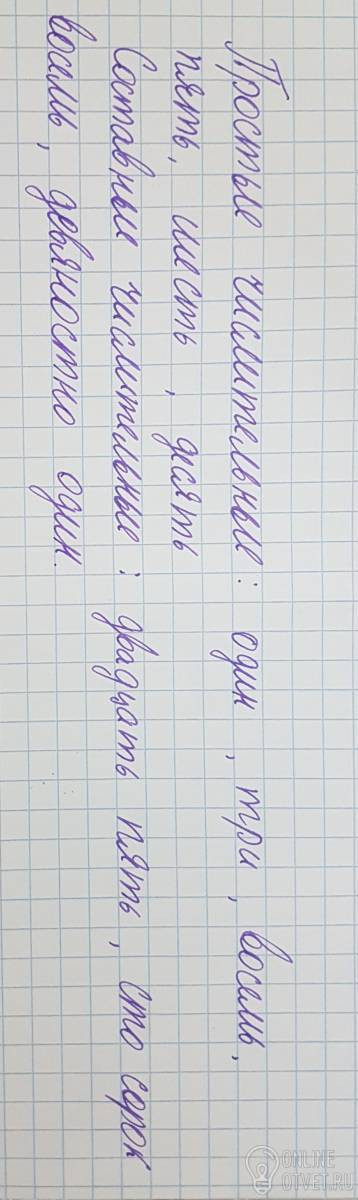 Простые числительные: один, три, восемь,
пять, шесть, десять
Составные числительные: двадцать пять, сто сорок
восемь, девяносто один.
ONLINE
OTVET.RU